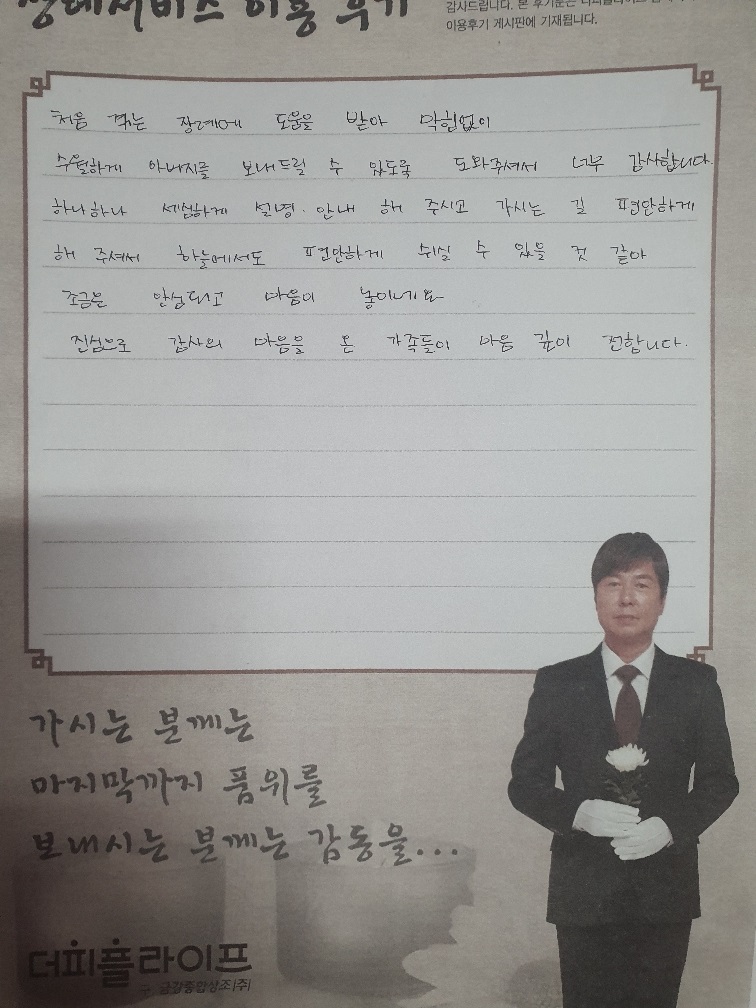 장례서비스 이용 후기
이용후기 게시판에 기재됩니다.
처음 겪는 장례에 도움을 받아 막힘없이
수월하게 아버지를 보내드릴 수 있도록 도와주셔서 너무 감사합니다.
하나하나 세심하게 설명·안내 해 주시고 가시는 길 편안하게
해 주셔서 하늘에서도 편안하게 쉬실 수 있을 것 같아
조금은 안심되고 마음이 놓이네요
진심으로 감사의 마음을 온 가족들이 마음 깊이 전합니다.
가시는 분께는
마지막까지 품위를
보내시는 분께는 감동을...
더피플라이프
구 금강종합상조(주)